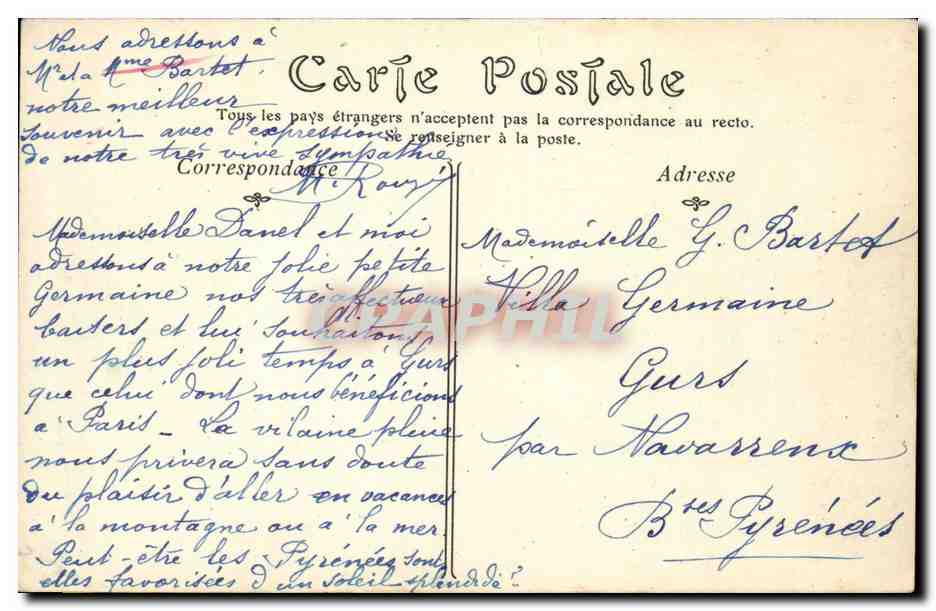 Nous adressons à
Mr et à Mme Bartet,
notre meilleur
souvenir avec l'expression
de notre très vive sympathie
M. Rougé
Carte Postale
Tous les pays étrangers n'acceptent pas la correspondance au recto.
Se renseigner à la poste.
Correspondance
Mademoiselle Danel et moi
adressons à notre jolie petite
Germaine nos très affectueux
baisers et lui souhaitons
un plus joli temps à Gurs
que celui dont nous bénéficions
à Paris - La vilaine pluie
nous privera sans doute
du plaisir d'aller en vacances
à la montagne ou à la mer.
Peut-être les Pyrénées sont
elles favorisées d'un soleil splendide?
Adresse
Mademoiselle G. Bartet
Villa Germaine
Gurs
par Navarrenx
Bses Pyrénées
CARPHIL